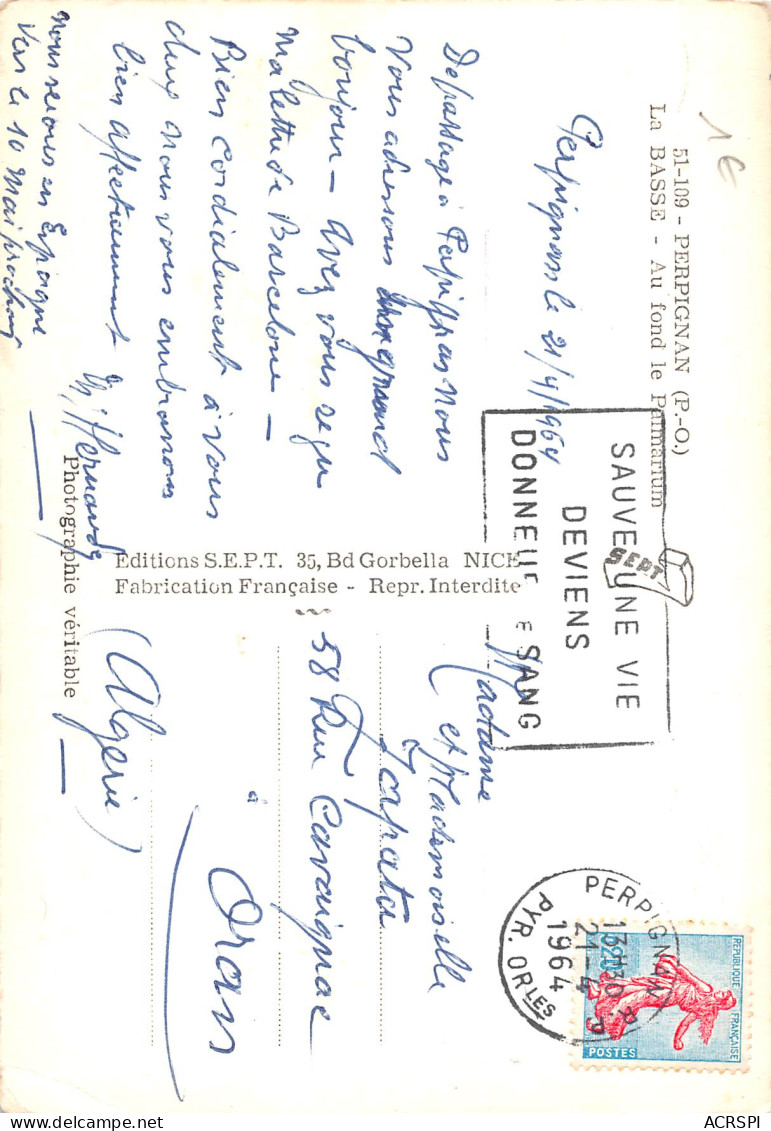 1€
51-109 - PERPIGNAN (P.-O.)
La BASSE - Au fond le Palmarium
Perpignan le 21/4/1964
De passage à Perpignan Nous
Vous adressons un grand
bonjour - Avez vous reçu
ma lettre de Barcelone -
Bien cordialement à vous
deux nous vous embrassons
bien affectueusement
M. Hernandez
nous serons en Espagne
vers le 10 Mai prochain
Editions S.E.P.T. 35, Bd Gorbella NICE
Fabrication Française - Repr. Interdite
Photographie véritable
SEPT
SAUVE UNE VIE
DEVIENS
DONNEUR DE SANG
PERPIGNAN R.P.
13H30
21-4
1964
PYR. ORLES
REPUBLIQUE FRANÇAISE
0,20
POSTES
Madame
et Mademoiselle
Zapata
58 Rue Cavaignac
à Oran
(Algérie)
ACRSPI